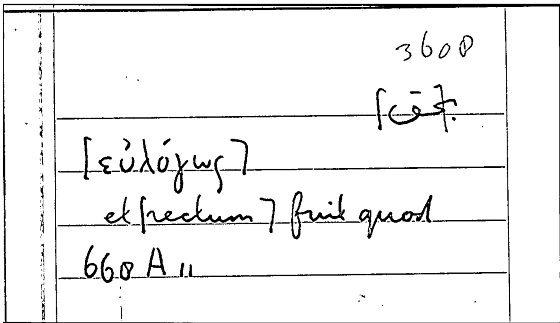 3608
[εὐλόγως]
et [rectum] fuit quod
668 A 11